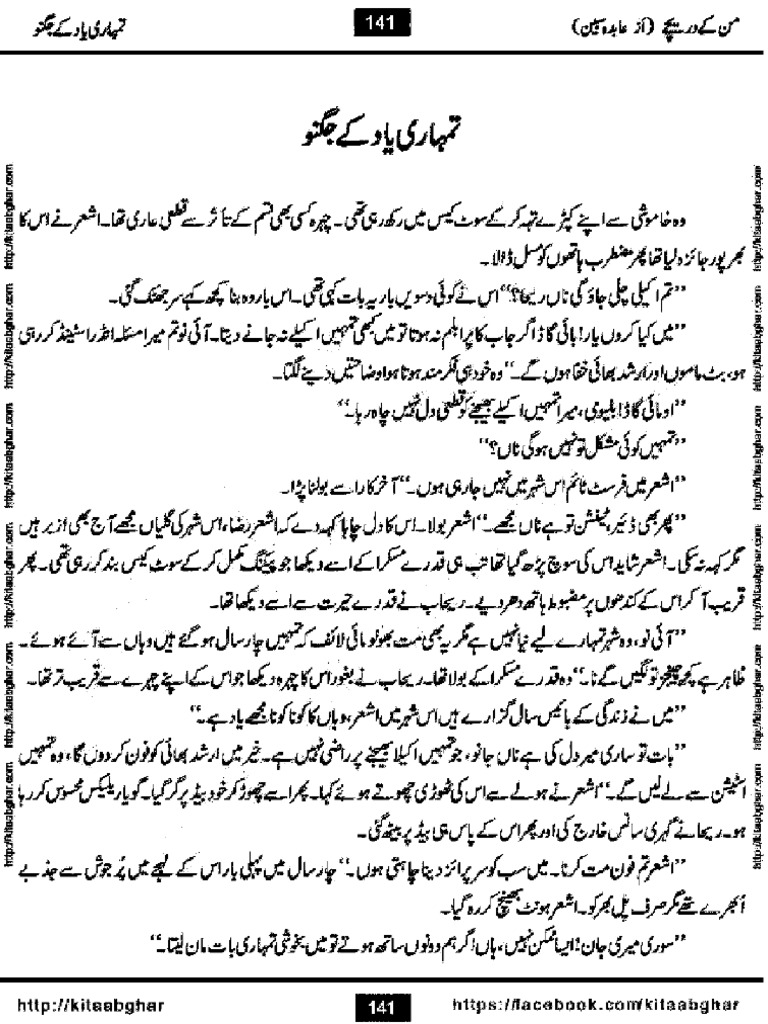 من کے دریچے (از عابدہ سبین)
141
تمہاری یاد کے جگنو
تمہاری یاد کے جگنو
وہ خاموشی سے اپنے کپڑے تہہ کر کے سوٹ کیس میں رکھ رہی تھی۔ چہرہ کسی بھی قسم کے تأثر سے قطعی عاری تھا۔ اشعر نے اس کا
بھرپور جائزہ لیا تھا پھر مضطرب ہاتھوں کو مسل ڈالا۔
”تم اکیلی چلی جاؤ گی ناں ریحا؟“ اس نے کوئی دسویں بار یہ بات کہی تھی۔ اس بار وہ بنا کچھ کہے سر جھٹک گئی۔
”میں کیا کروں یار! بائی گاڈ اگر جاب کا پرابلم نہ ہوتا تو میں کبھی تمہیں اکیلے نہ جانے دیتا۔ آئی نو تم میرا مسئلہ انڈر اسٹینڈ کر رہی
ہو، بٹ ماموں اور ارشد بھائی خفا ہوں گے۔“ وہ خود ہی فکر مند ہوتا ہوا وضاحتیں دینے لگتا۔
”او مائی گاڈ بلیومی، میرا تمہیں اکیلے بھیجنے کو قطعی دل نہیں چاہ رہا۔“
”تمہیں کوئی مشکل تو نہیں ہو گی ناں؟“
”اشعر میں فرسٹ ٹائم اس شہر میں نہیں جا رہی ہوں۔“ آخر کار اسے بولنا پڑا۔
”پھر بھی ڈئیر، ٹینشن تو ہے ناں مجھے۔“ اشعر بولا۔ اُس کا دل چاہا کہہ دے کہ اشعر رضا، اس شہر کی گلیاں مجھے آج بھی ازبر ہیں
مگر کہہ نہ سکی۔ اشعر شاید اس کی سوچ پڑھ گیا تھا تب ہی قدرے مسکرا کے اسے دیکھا جو پیکنگ مکمل کر کے سوٹ کیس بند کر رہی تھی۔ پھر
قریب آ کر اس کے کندھوں پر مضبوط ہاتھ دھر دیے۔ ریحاب نے قدرے حیرت سے اسے دیکھا تھا۔
”آئی نو، وہ شہر تمہارے لیے نیا نہیں ہے مگر یہ بھی مت بھولو مائی لائف کہ تمہیں چار سال ہو گئے ہیں وہاں سے آئے ہوئے۔
ظاہر ہے کچھ چینجز تو لگیں گے نا۔“ وہ قدرے مسکرا کے بولا تھا۔ ریحاب نے بغور اس کا چہرہ دیکھا جو اس کے اپنے چہرے سے قریب تر تھا۔
”میں نے زندگی کے بائیس سال گزارے ہیں اس شہر میں اشعر، وہاں کا کونا کونا مجھے یاد ہے۔“
”بات تو ساری میرے دل کی ہے ناں جانو، جو تمہیں اکیلا بھیجنے پر راضی نہیں ہے۔ خیر میں ارشد بھائی کو فون کر دوں گا، وہ تمہیں
اسٹیشن سے لے لیں گے۔“ اشعر نے ہولے سے اس کی ٹھوڑی چھوتے ہوئے کہا۔ پھر اسے چھوڑ کر خود بیڈ پر گر گیا۔ گویا ریلیکس محسوس کر رہا
ہو۔ ریحا نے گہری سانس خارج کی اور پھر اس کے پاس ہی بیڈ پر بیٹھ گئی۔
”اشعر تم فون مت کرنا۔ میں سب کو سرپرائز دینا چاہتی ہوں۔“ چار سال میں پہلی بار اس کے لہجے میں پُر جوش سے جذبے
اُبھرے تھے مگر صرف پل بھر کو۔ اشعر ہونٹ بھینچ کر رہ گیا۔
”سوری میری جان! ایسا ممکن نہیں، ہاں! اگر ہم دونوں ساتھ ہوتے تو میں بخوشی تمہاری بات مان لیتا۔“
http://kitaabghar.com http://kitaabghar.com http://kitaabghar.com http://kitaabghar.com http://kitaabghar.com http://kitaabghar.com
http://kitaabghar.com http://kitaabghar.com http://kitaabghar.com http://kitaabghar.com http://kitaabghar.com http://kitaabghar.com
http://kitaabghar
141
https://facebook.com/kitaabghar